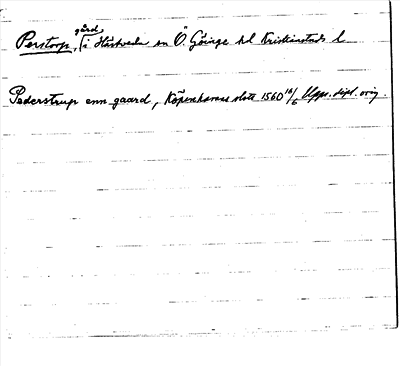 Perstorp, gård i Hästveda sn Ö. Göinge hd Kristianstads l.
Pederstrup enn gaard, Köpenhavns slott 1560 16/6 Upps. dipl. orig.